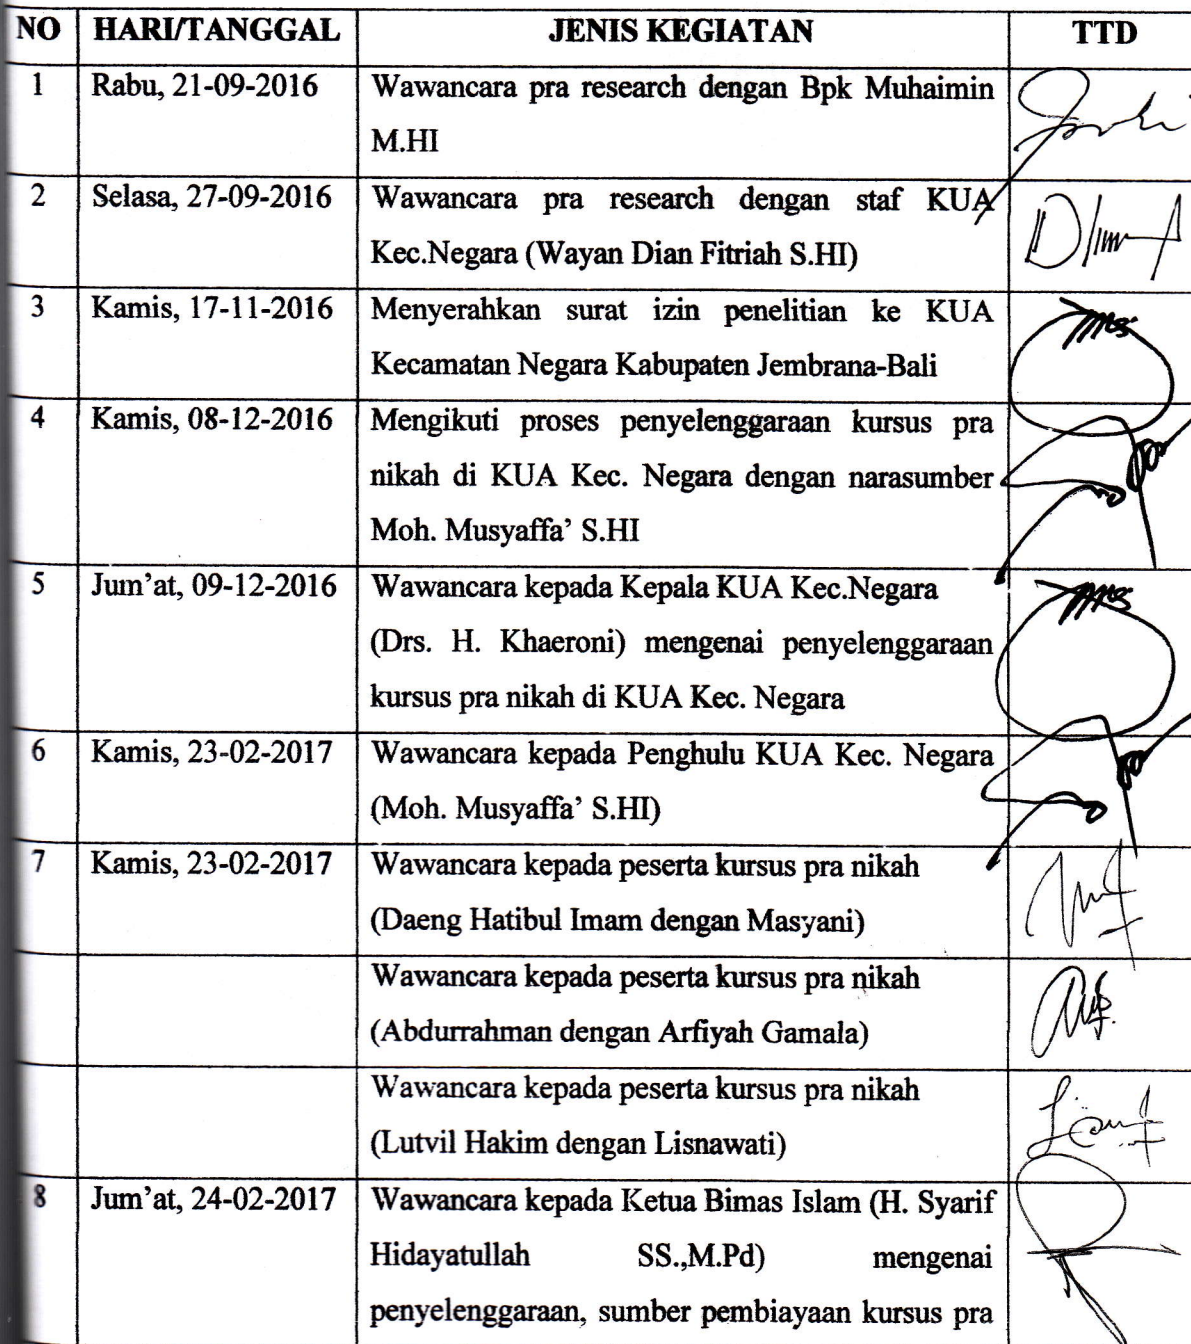 NO HARI/TANGGAL JENIS KEGIATAN TTD
1 Rabu, 21-09-2016 Wawancara pra research dengan Bpk Muhaimin
M.HI
2 Selasa, 27-09-2016 Wawancara pra research dengan staf KUA
Kec.Negara (Wayan Dian Fitriah S.HI)
3 Kamis, 17-11-2016 Menyerahkan surat izin penelitian ke KUA
Kecamatan Negara Kabupaten Jembrana-Bali
4 Kamis, 08-12-2016 Mengikuti proses penyelenggaraan kursus pra
nikah di KUA Kec. Negara dengan narasumber
Moh. Musyaffa’ S.HI
5 Jum’at, 09-12-2016 Wawancara kepada Kepala KUA Kec.Negara
(Drs. H. Khaeroni) mengenai penyelenggaraan
kursus pra nikah di KUA Kec. Negara
6 Kamis, 23-02-2017 Wawancara kepada Penghulu KUA Kec. Negara
(Moh. Musyaffa’ S.HI)
7 Kamis, 23-02-2017 Wawancara kepada peserta kursus pra nikah
(Daeng Hatibul Imam dengan Masyani)
Wawancara kepada peserta kursus pra nikah
(Abdurrahman dengan Arfiyah Gamala)
Wawancara kepada peserta kursus pra nikah
(Lutvil Hakim dengan Lisnawati)
8 Jum’at, 24-02-2017 Wawancara kepada Ketua Bimas Islam (H. Syarif
Hidayatullah SS.,M.Pd) mengenai
penyelenggaraan, sumber pembiayaan kursus pra